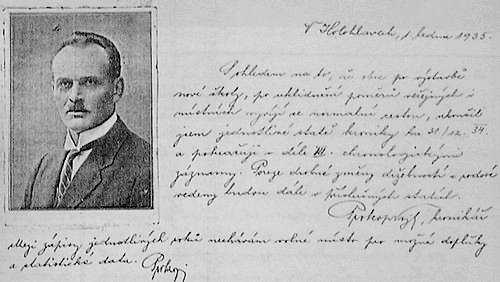 V Holohlavech, 1. ledna 1935.
S ohledem na to, že obec po výstavbě
nové školy, po uklidnění poměrů veřejných i
místních vyvíjí se normální cestou, ukončil
jsem jednotlivé statě kroniky ku 31/12. 34.
a pokračuji v díle VII. chronologickými
záznamy. Pouze drobné změny držebnosti a rodové
vedeny budou dále v příslušných statích.
Prokopský, kronikář
Mezi zápisy jednotlivých roků nechávám volné místo pro možné doplňky
a statistická data.